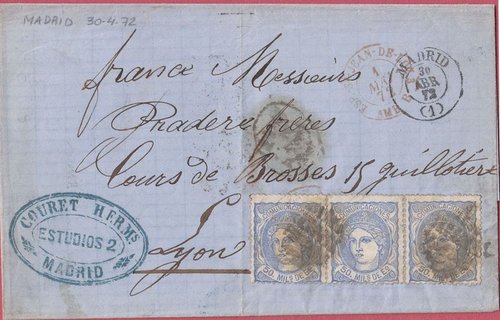 MADRID 30-4.72
france Messieurs
Pradere frères
Cours de Brosses 15 guillotière
Lyon
MADRID
30
ABR
72
(1)
JEAN-DE-
1
ESP
AMB
COURET HERMS
ESTUDIOS 2
MADRID
COMUNICACIONES
50 MILS DE ES
COMUNICACIONES
50. MILS DE ES
COMUNICACIONES
50. MILS DE ES